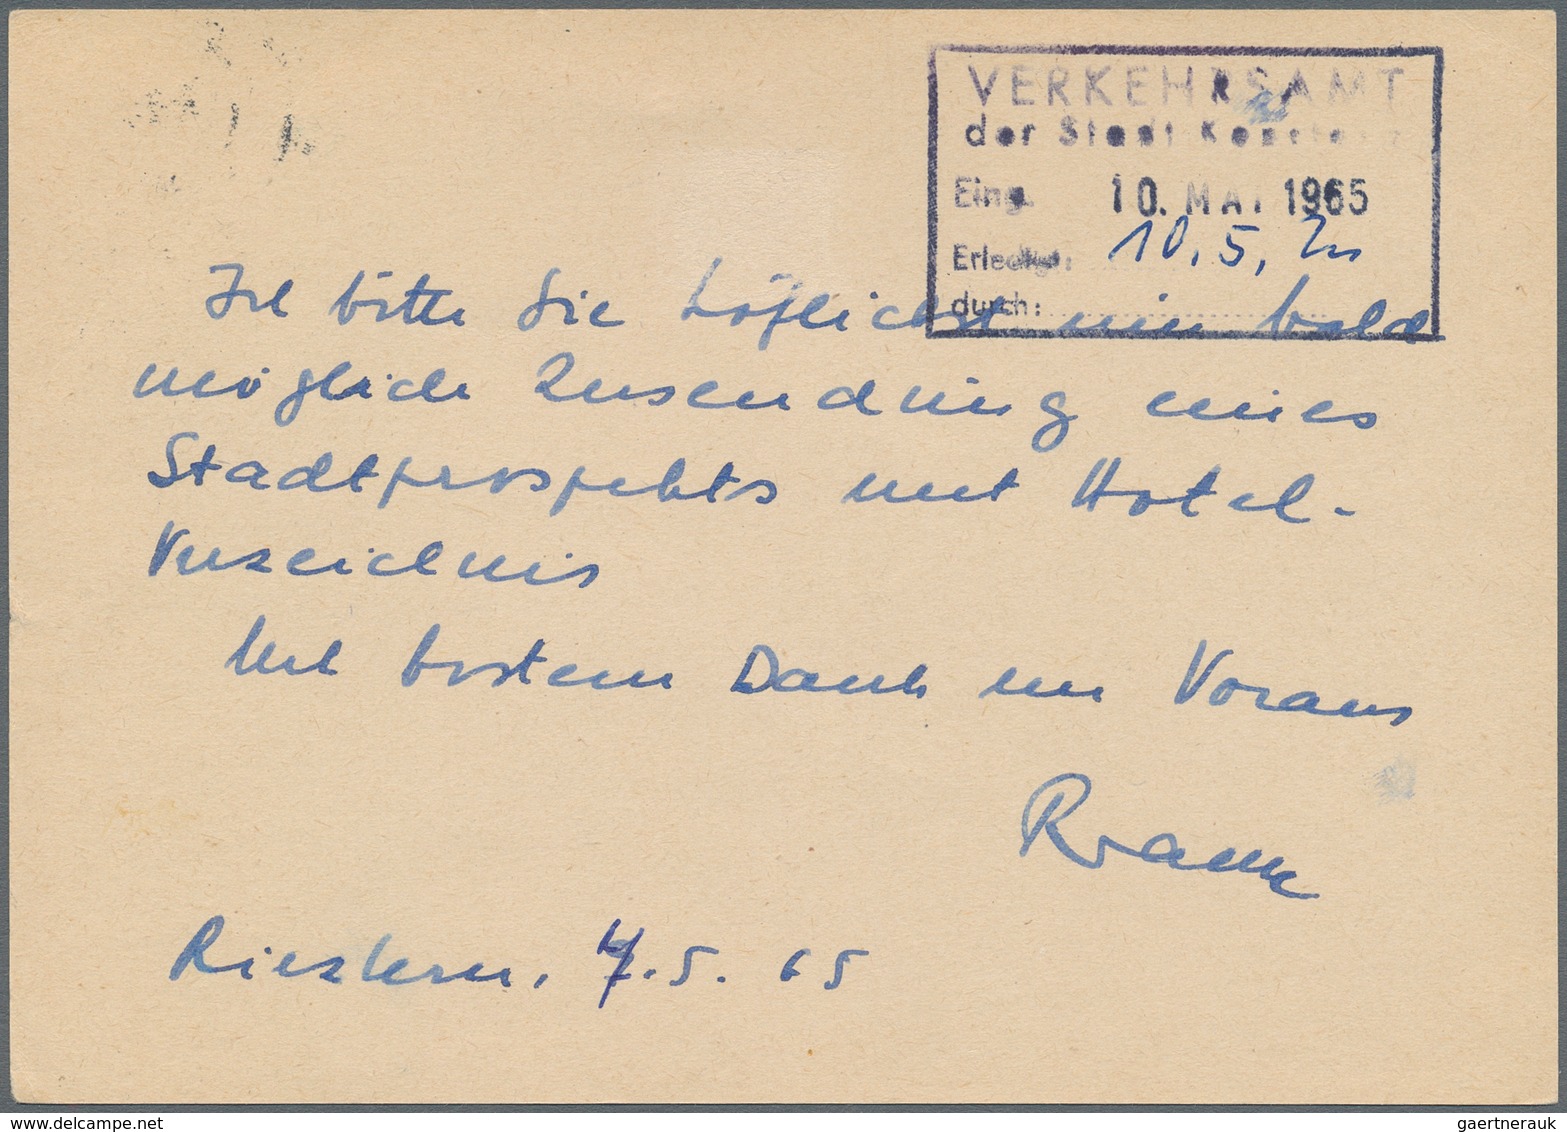 VERKEHRSAMT
der Stadt Konstanz
Eing. 10. MAI 1965
Erledigt: 10.5.
durch:
Ich bitte Sie höflichst um bald
mögliche Zusendung eines
Stadtprospekts mit Hotel-
Verzeichnis
Mit bestem Dank im Voraus
7.5.65
www.delcampe.net
gaertnerauk